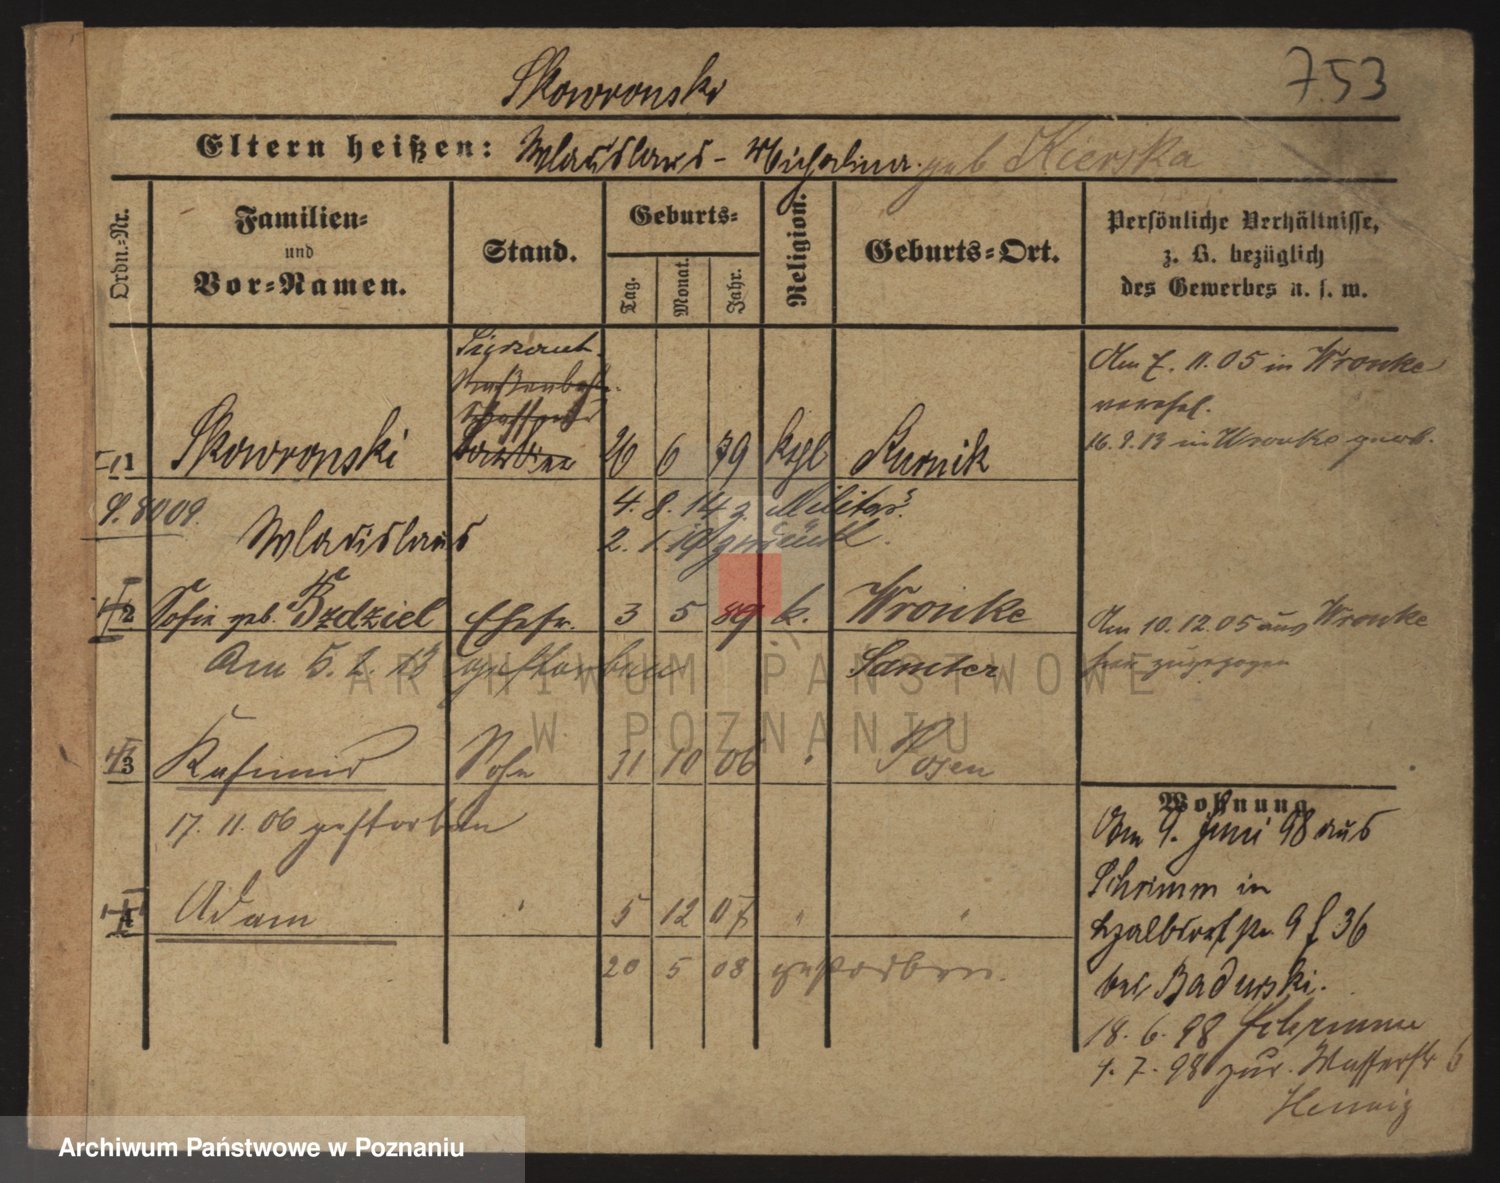 Skowronski
753
Eltern heißen: Wladislaus - Michalina geb Kierska
Ordn.=Nr.
Familien=
und
Vor=Namen.
Stand.
Geburts=
Tag.
Monat.
Jahr.
Religion.
Geburts=Ort.
Persönliche Verhältnisse,
z. B. bezüglich
des Gewerbes u. s. w.
Am 7. 11. 05 in Wronke
verehel.
1 Skowronski 26 6 79 kthl Kurnik
16. 9. 13 in Wronke
9. 8009 Wladislaus
4. 8. 14 z. Militär
2. 1. 19 zurück
2 Sofie geb. Bzdziel Ehefr. 3 5 89 k. Wronke
Samter
Am 10. 12. 05 aus Wronke
zugezogen
Am 5. 2. 13 gestorben
3 Kasimir Sohn 31 10 06 Posen
17. 11. 06 gestorben
4 Adam 5 12 07 " "
20 5 08 gestorben.
Wohnung.
Am 9. Juni 98 aus
Schrimm in
9 36
bei Badurski.
18. 6. 98 Schrimm
9. 7. 98 zur. Wasserstr 6
Hennig
ARCHIWUM PAŃSTWOWE
W POZNANIU
Archiwum Państwowe w Poznaniu